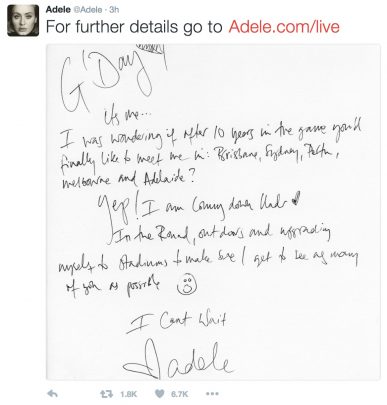 Adele @Adele · 3h
For further details go to Adele.com/live
G'Day
Its me...
I was wondering if after 10 years in the game you'd
finally like to meet me in: Brisbane, Sydney, Perth,
Melbourne and Adelaide?
Yep! I am coming down Under
In the Round, outdoors and upgrading
myself to stadiums to make sure I get to see as many
of you as possible
I Cant Wait
adele
1.8K 6.7K